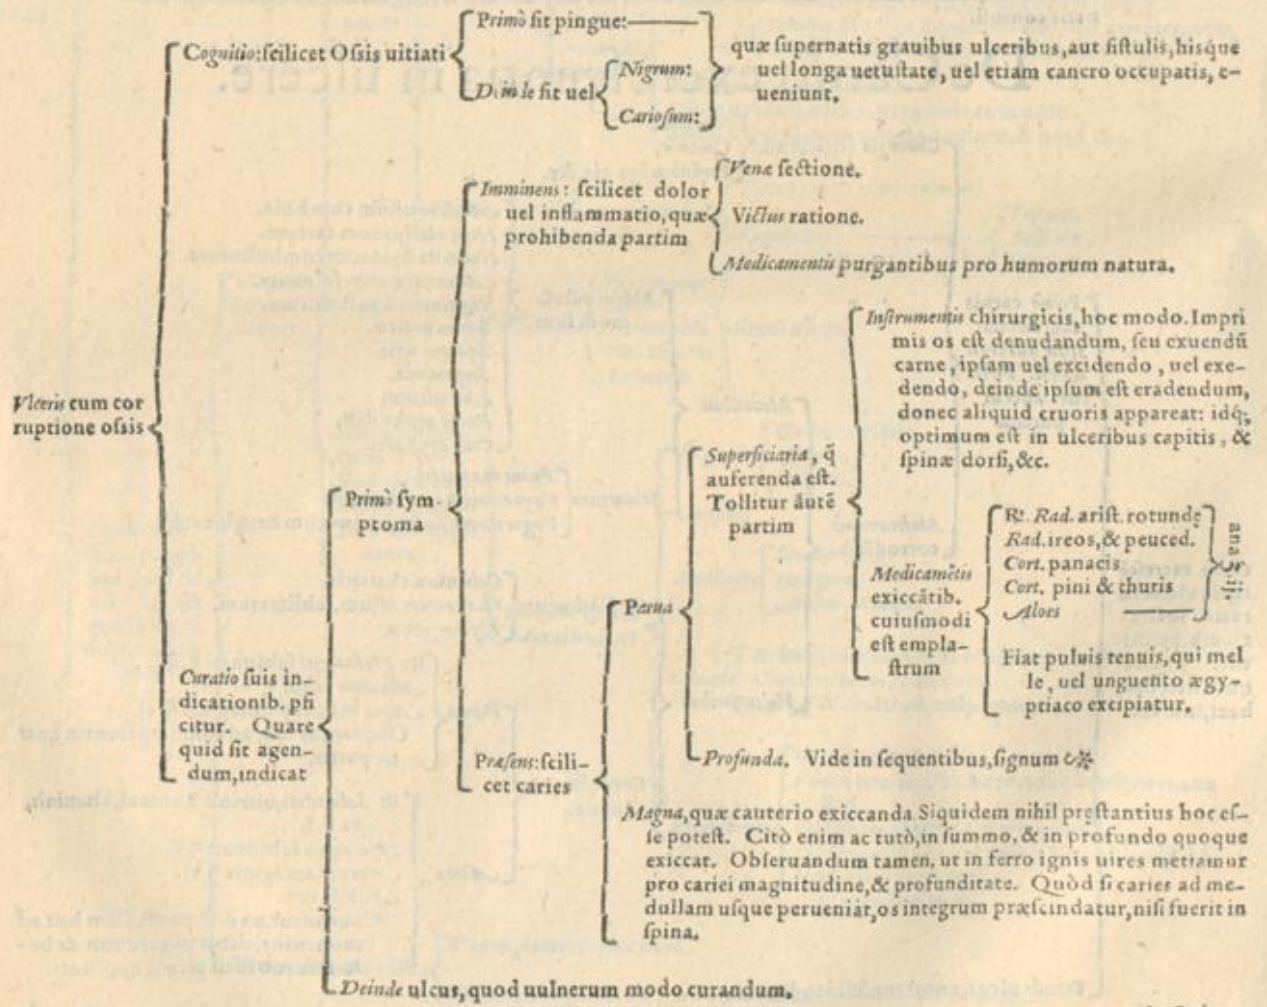 Vlceris cum cor
ruptione ossis
Cognitio: scilicet Ossis uitiati
Primò fit pingue:
Deinde fit uel
Nigrum:
Cariosum:
quæ supernatis grauibus ulceribus, aut fistulis, hisque
uel longa uetustate, uel etiam cancro occupatis, e-
ueniunt.
Curatio suis in-
dicationib. pfi
citur. Quare
quid sit agen-
dum, indicat
Primò sym-
ptoma
Imminens: scilicet dolor
uel inflammatio, quæ
prohibenda partim
Venæ sectione.
Victus ratione.
Medicamentis purgantibus pro humorum natura.
Præsens: scili-
cet caries
Parua
Superficiaria, q̃
auferenda est.
Tollitur âutẽ
partim
Instrumentis chirurgicis, hoc modo. Impri
mis os est denudandum, seu exuendũ
carne, ipsam uel excidendo, uel exe-
dendo, deinde ipsum est eradendum,
donec aliquid cruoris appareat: idq;
optimum est in ulceribus capitis, &
spinæ dorsi, &c.
Medicamẽtis
exiccãtib.
cuiusmodi
est empla-
strum
℞. Rad. arist. rotundę
Rad. ireos, & peuced.
Cort. panacis
Cort. pini & thuris
Aloes
ana ʒ ij.
Fiat puluis tenuis, qui mel
le, uel unguento ægy-
ptiaco excipiatur.
Profunda. Vide in sequentibus, signum
Magna, quæ cauterio exiccanda Siquidem nihil pręstantius hoc es-
se potest. Citò enim ac tutò, in summo, & in profundo quoque
exiccat. Obseruandum tamen, ut in ferro ignis uires metiamur
pro cariei magnitudine, & profunditate. Quòd si caries ad me-
dullam usque perueniat, os integrum præscindatur, nisi fuerit in
spina.
Deinde ulcus, quod uulnerum modo curandum.